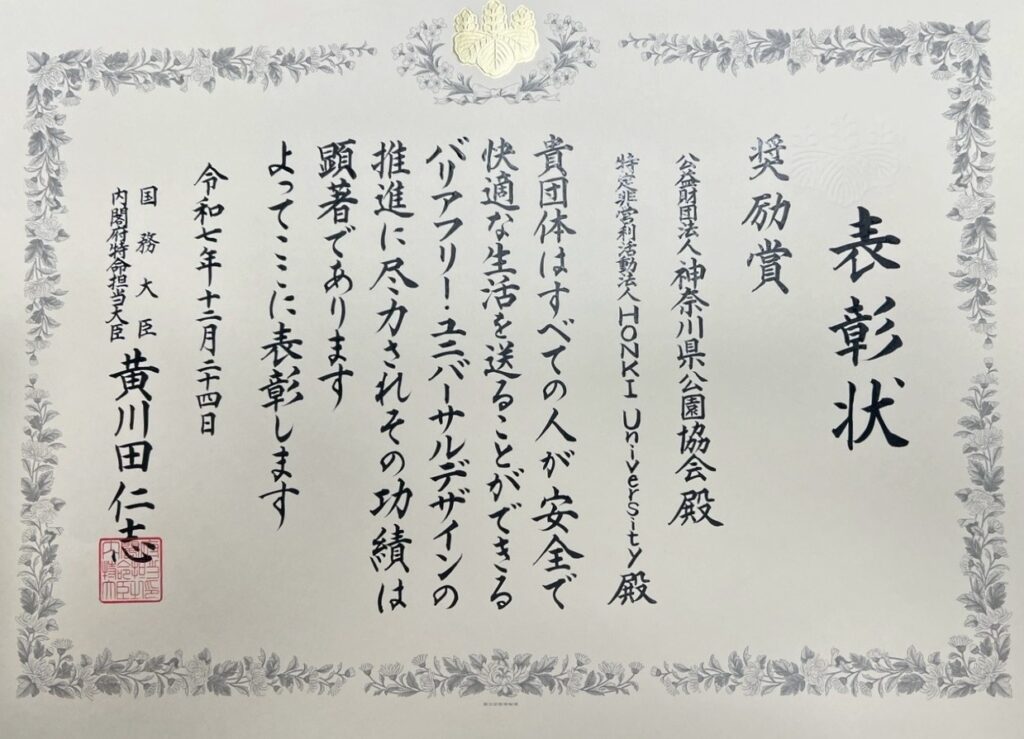 表彰状
奨励賞
公益財団法人神奈川県公園協会殿
特定非営利活動法人HONKI University殿
貴団体はすべての人が安全で
快適な生活を送ることができる
バリアフリー・ユニバーサルデザインの
推進に尽力されその功績は
顕著であります
よってここに表彰します
令和七年十二月二十四日
国務大臣
内閣府特命担当大臣
黄川田仁志